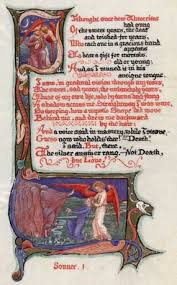 I thought once how Theocritus
had sung
Of the sweet years, the dear
and wished-for years,
Who each one in a gracious hand
appears
To bear a gift for mortals
old or young:
And, as I mused it in his
antique tongue,
I saw, in gradual vision through my tears,
The sweet, sad years, the melancholy years,
Those of my own life, who by turns had flung
A shadow across me. Straightway I was 'ware,
So weeping, how a mystic shape did move
Behind me, and drew me backward
by the hair:
And a voice said in mastery, while I strove,
Guess now who holds thee? "Death,"
I said. But, there,
The silver answer rang,—Not Death,
but Love.
Sonnet. I.